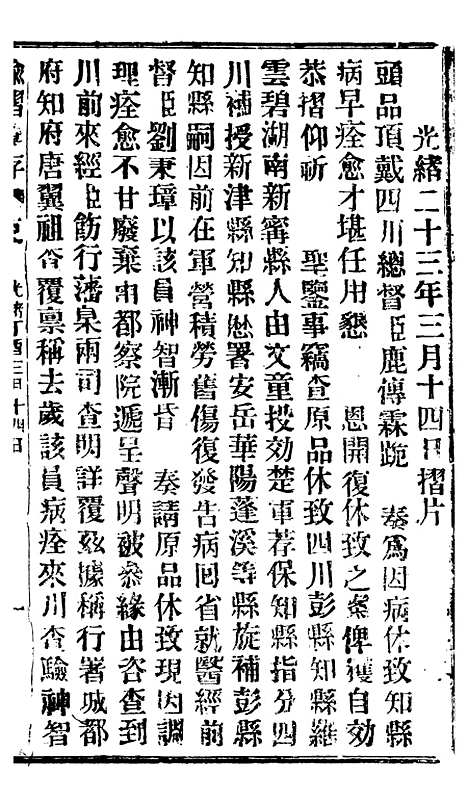 光緒二十三年三月十四日摺片
頭品頂戴四川總督臣鹿傳霖跪　奏爲因病休致知縣
病早痊愈才堪任用懇　恩開復休致之案俾獲自効
恭摺仰祈　聖鑒事竊查原品休致四川彭縣知縣羅
雲碧湖南新甯縣人由文童投効楚軍荐保知縣指分四
川補授新津縣知縣歷署安岳華陽蓬溪等縣旋補彭縣
知縣嗣因前在軍營積勞舊傷復發告病回省就醫經前
督臣劉秉璋以該員神智漸昏　奏請原品休致現因調
理痊愈不甘廢棄由都察院遞呈聲明被叅緣由咨查到
川前來經臣飭行藩臬兩司查明詳覆玆據稱行署成都
府知府唐翼祖查覆禀稱去歲該員病痊來川查驗神智
光緒丁酉三月十四日
一